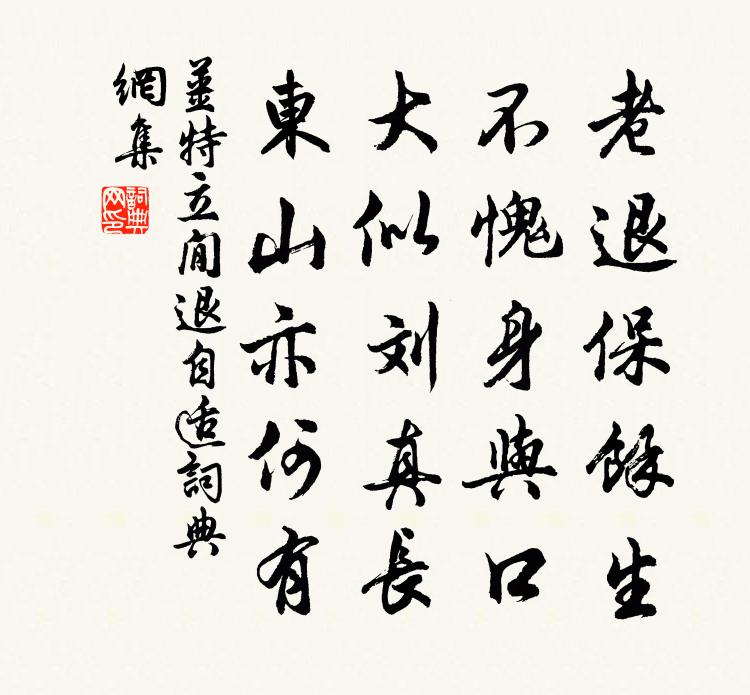 老退保餘生
不愧身與口
大似刘真長
東山亦何有
姜特立閒退自适詞典
網集
詞典网印